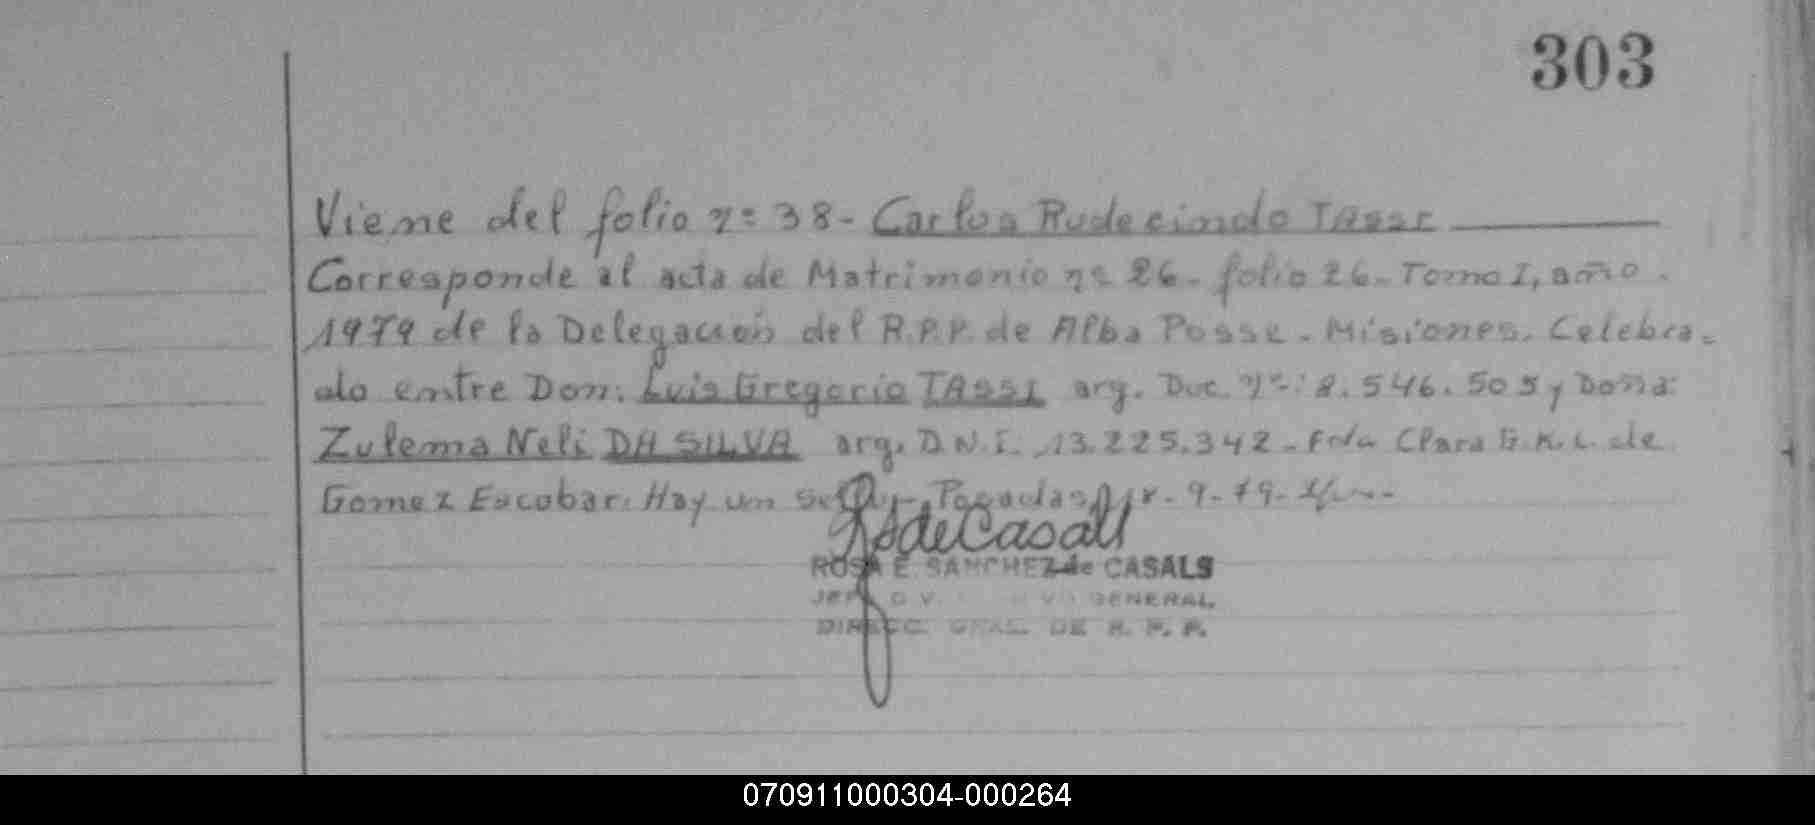 303
Viene del folio nº 38 - Carlos Rudecindo TASSI
Corresponde al acta de Matrimonio nº 26 - folio 26 - Tomo I, año
1979 de la Delegación del R.P.P. de Alba Posse - Misiones. Celebra=
do entre Don: Luis Gregorio TASSI arg. Doc. nº: 8.546.505 y Doña:
Zulema Neli DA SILVA arg. D.N.I. 13.225.342 - Fda Clara G.K.L. de
Gomez Escobar. Hay un sello - Posadas, - 9 - 79 -
RSdeCasals
ROSA E. SANCHEZ de CASALS
GENERAL
DIRECC. GRAL. DE R. P. P.
070911000304-000264